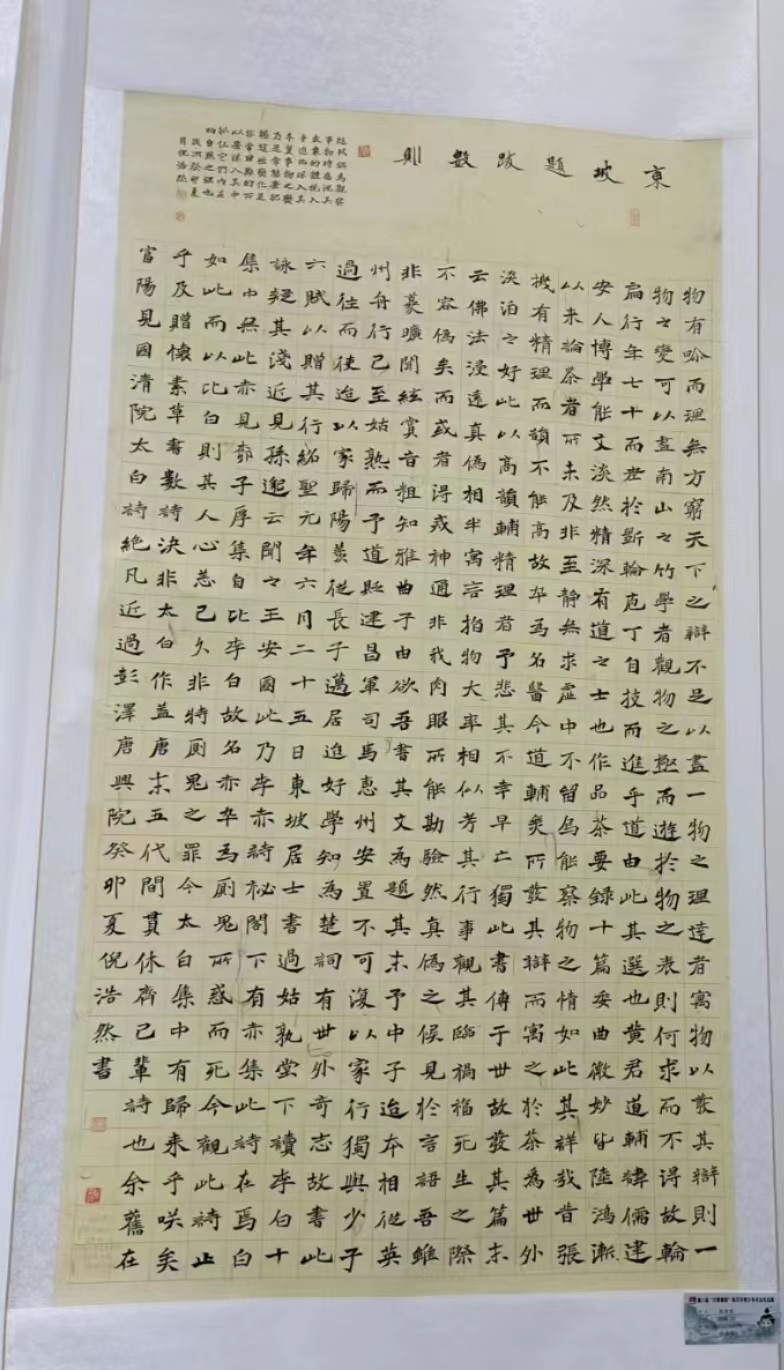 東坡題跋數則
物有畛而理無方窮天下之辯不足以盡一物之理達者寓物以發其辯則一
物之變可以盡南山之竹學者觀物之極而遊於物之表則何求而不得故輪
扁行年七十而老於斲輪庖丁自技而進乎道由此其選也黃君道輔諱儒建
安人博學能文淡然精深有道之士也作品茶要録十篇委曲微妙皆陸鴻漸
以来論茶者所未及非至靜無求虛中不留烏能察物之情如此其詳哉昔張
機有精理而韻不能高故卒為名醫今道輔無所發其辯而寓之於茶為世外
淡泊之好此以高韻輔精理者予悲其不幸早亡獨此書傳于世故發其篇末
云佛法浸遠真偽相半寓言指物大率相似考其行事觀其臨禍福死生之際
不容偽矣而或者得戒神通非我肉眼所能勘驗然真偽之候見於言語吾雖
非夔曠聞絃賞音粗知雅曲子由欲吾書其文為題其末予中子迨本相從英
州舟行已至姑熟而予道貶建昌軍司馬惠州安置不可復以家行獨與少子
過往而使迨以家歸陽羨從長子邁居迨好學知為楚詞有世外奇志故書此
六賦以贈其行紹聖元年六月二十五日東坡居士書過姑孰堂下讀李白十
詠疑其淺近見孫邈云聞之王安國此乃李赤詩秘閣下有赤集此詩在焉白
集中無此赤見柳子厚集自比李白故名赤卒為廁鬼所惑而死今觀此詩止
如此而以比白則其人心恙已久非特廁鬼之罪今太白集中有歸来乎咲矣
乎及贈懷素草書數詩決非太白作蓋唐末五代間貫休齊己輩詩也余舊在
富陽見國清院太白詩絕凡近過彭澤唐興院癸卯夏倪浩然書